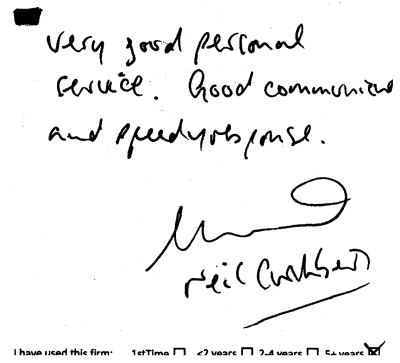 very good personal
service. Good communicat
and speedy response.
Neil Cuthbert
I have used this firm: 1st Time <2 years 2-4 years 5+ years